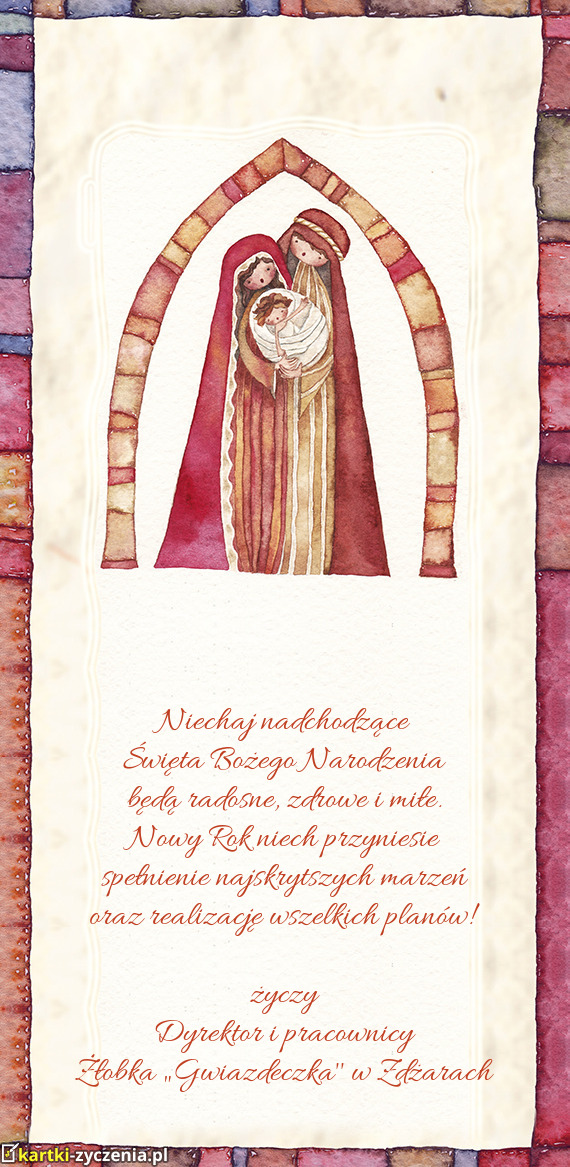 Niechaj nadchodzące
Święta Bożego Narodzenia
będą radosne, zdrowe i miłe.
Nowy Rok niech przyniesie
spełnienie najskrytszych marzeń
oraz realizację wszelkich planów!
życzy
Dyrektor i pracownicy
Żłobka „Gwiazdeczka" w Zdżarach
kartki-zyczenia.pl